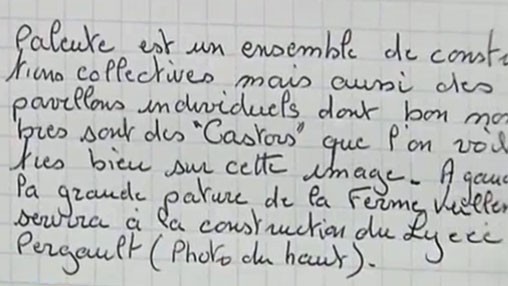 Paleute est un ensemble de const
tions collectives mais aussi des
pavillons individuels dont bon no
bres sont des "Castors" que l'on voi
tres bien sur cette image. A gau
la grande pature de la Ferme
servira à la construction du Lycée
Pergault (Photo du haut).